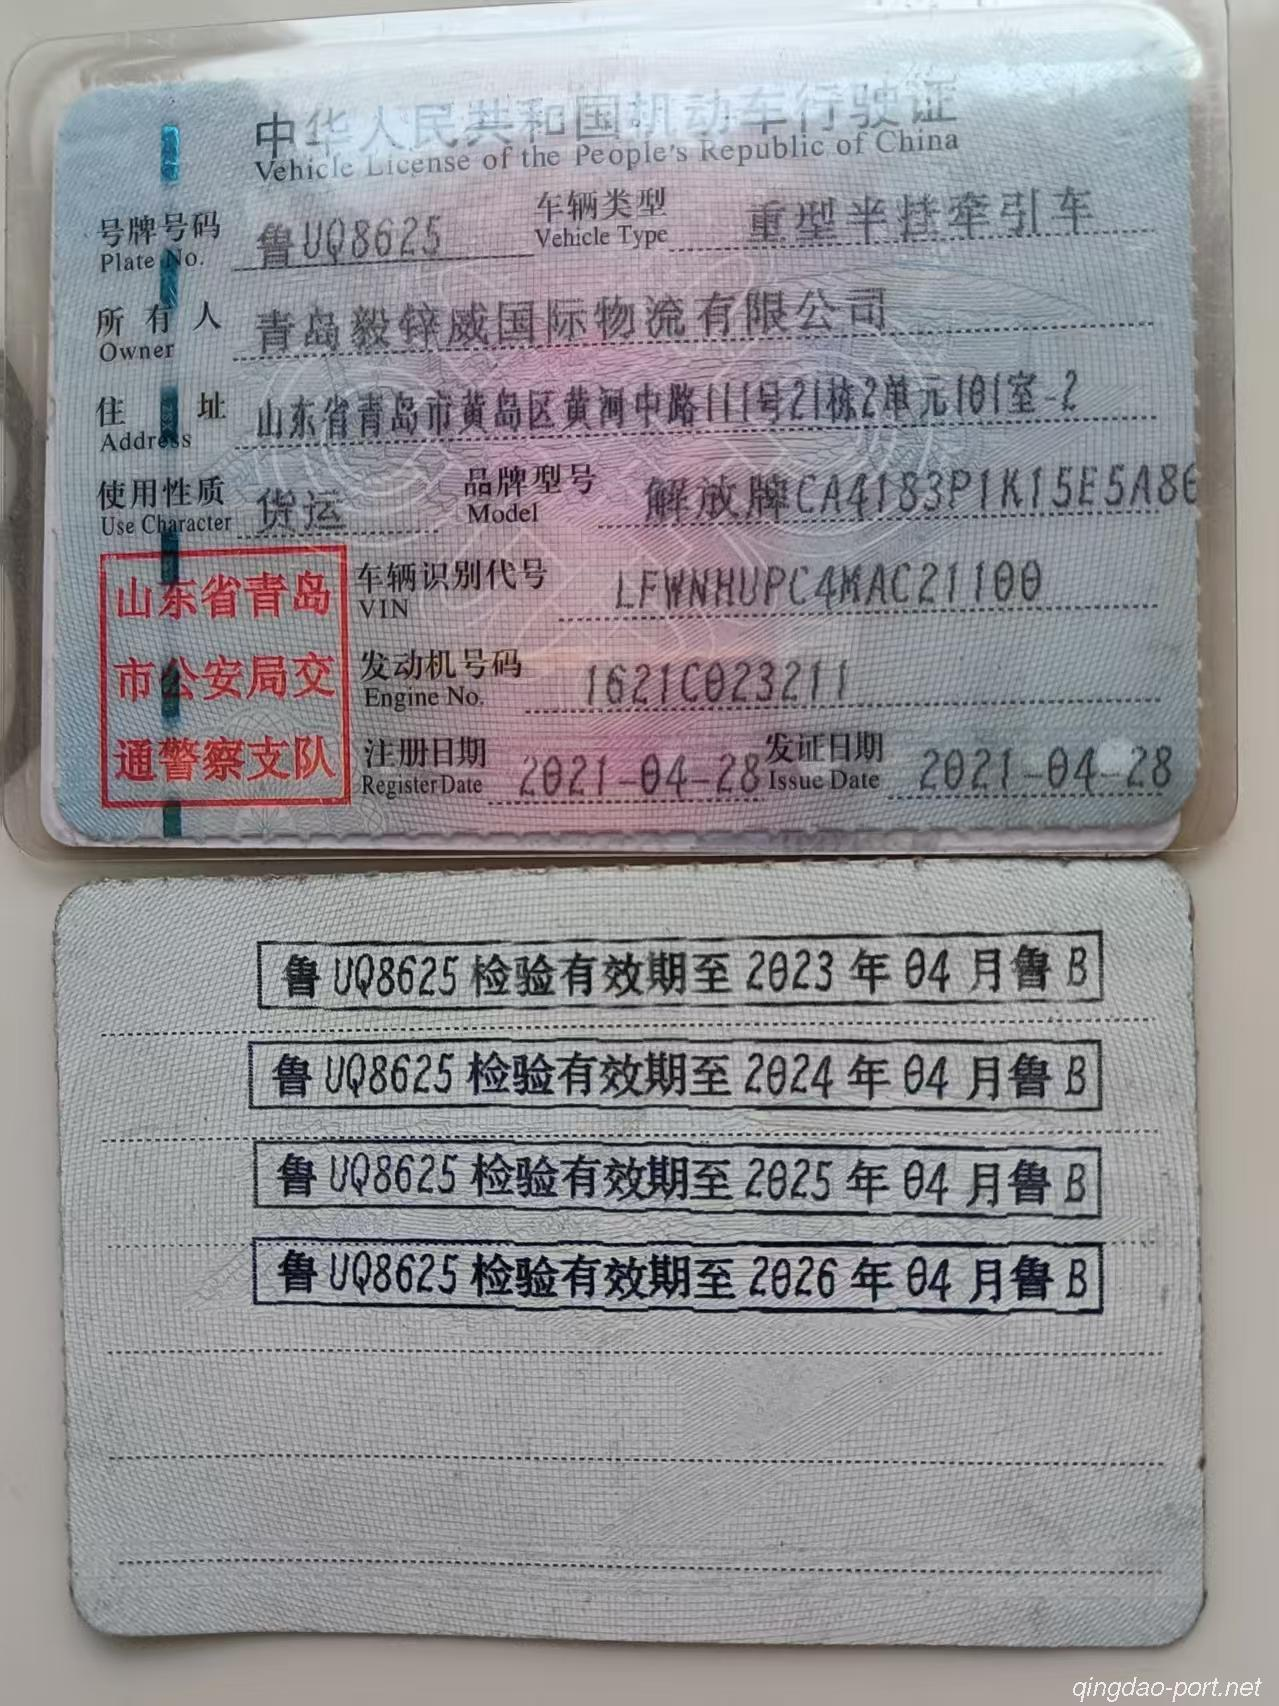 中华人民共和国机动车行驶证
Vehicle License of the People's Republic of China
号牌号码 鲁UQ8625 车辆类型 重型半挂牵引车
Plate No. Vehicle Type
所有人 青岛毅锌威国际物流有限公司
Owner
住址 山东省青岛市黄岛区黄河中路111号21栋2单元101室-2
Address
使用性质 货运 品牌型号 解放牌CA4183P1K15E5A8
Use Character Model
山东省青岛 车辆识别代号 LFWNHUPC4MAC21100
VIN
市公安局交 发动机号码 1621C023211
Engine No.
通警察支队 注册日期 2021-04-28 发证日期 2021-04-28
Register Date Issue Date
鲁UQ8625检验有效期至2023年04月鲁B
鲁UQ8625检验有效期至2024年04月鲁B
鲁UQ8625检验有效期至2025年04月鲁B
鲁UQ8625检验有效期至2026年04月鲁B
qingdao-port.net